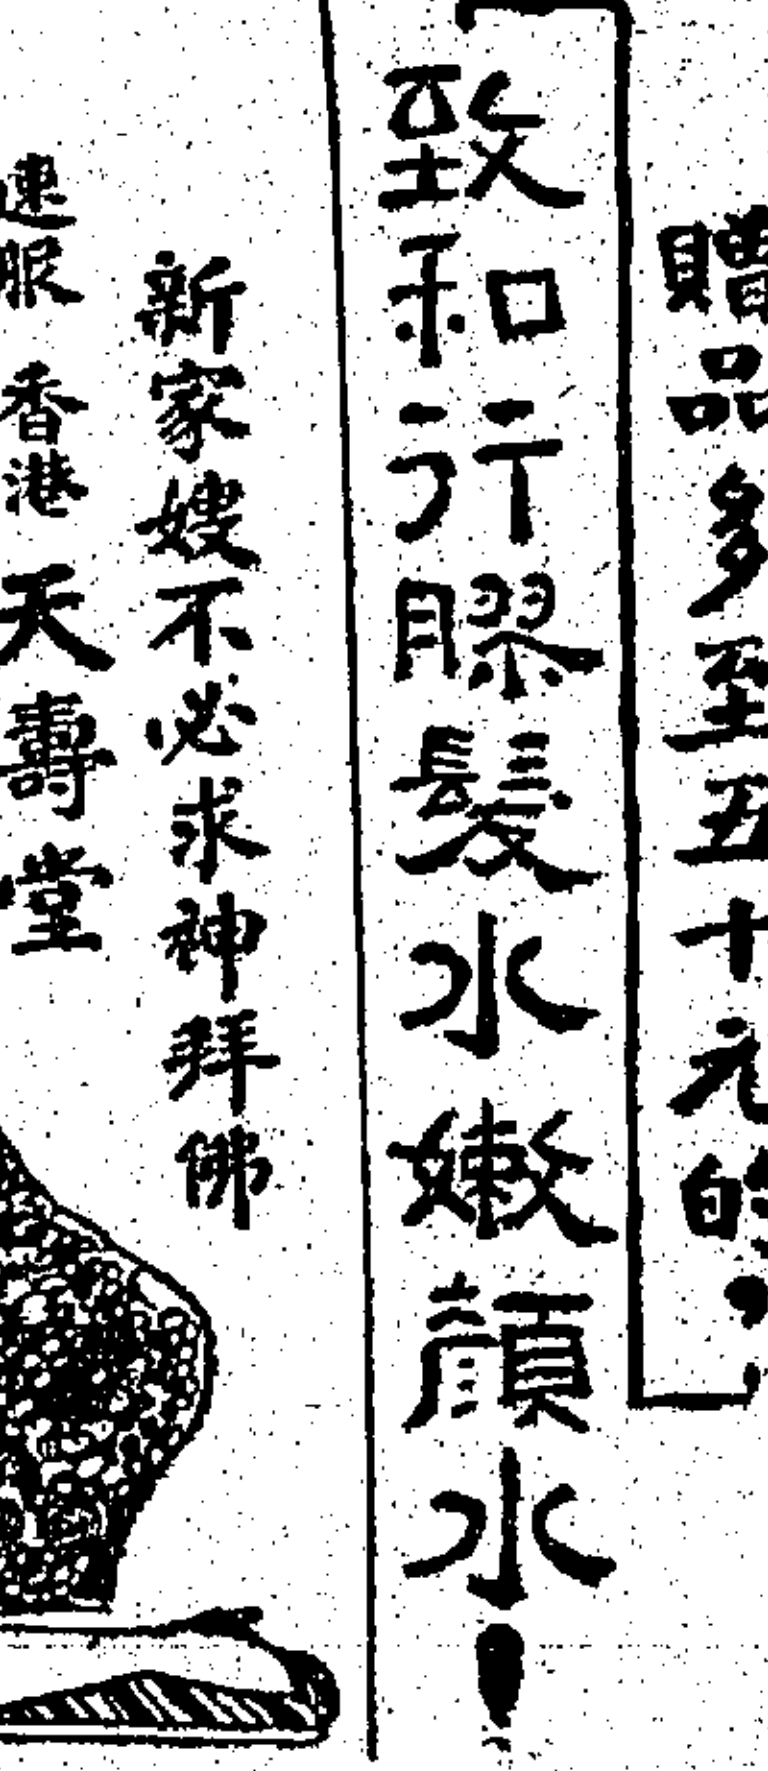 贈品多至五十元的，
致和行膠髮水嫩顏水！
新家嫂不必求神拜佛
速服 香港 天壽堂